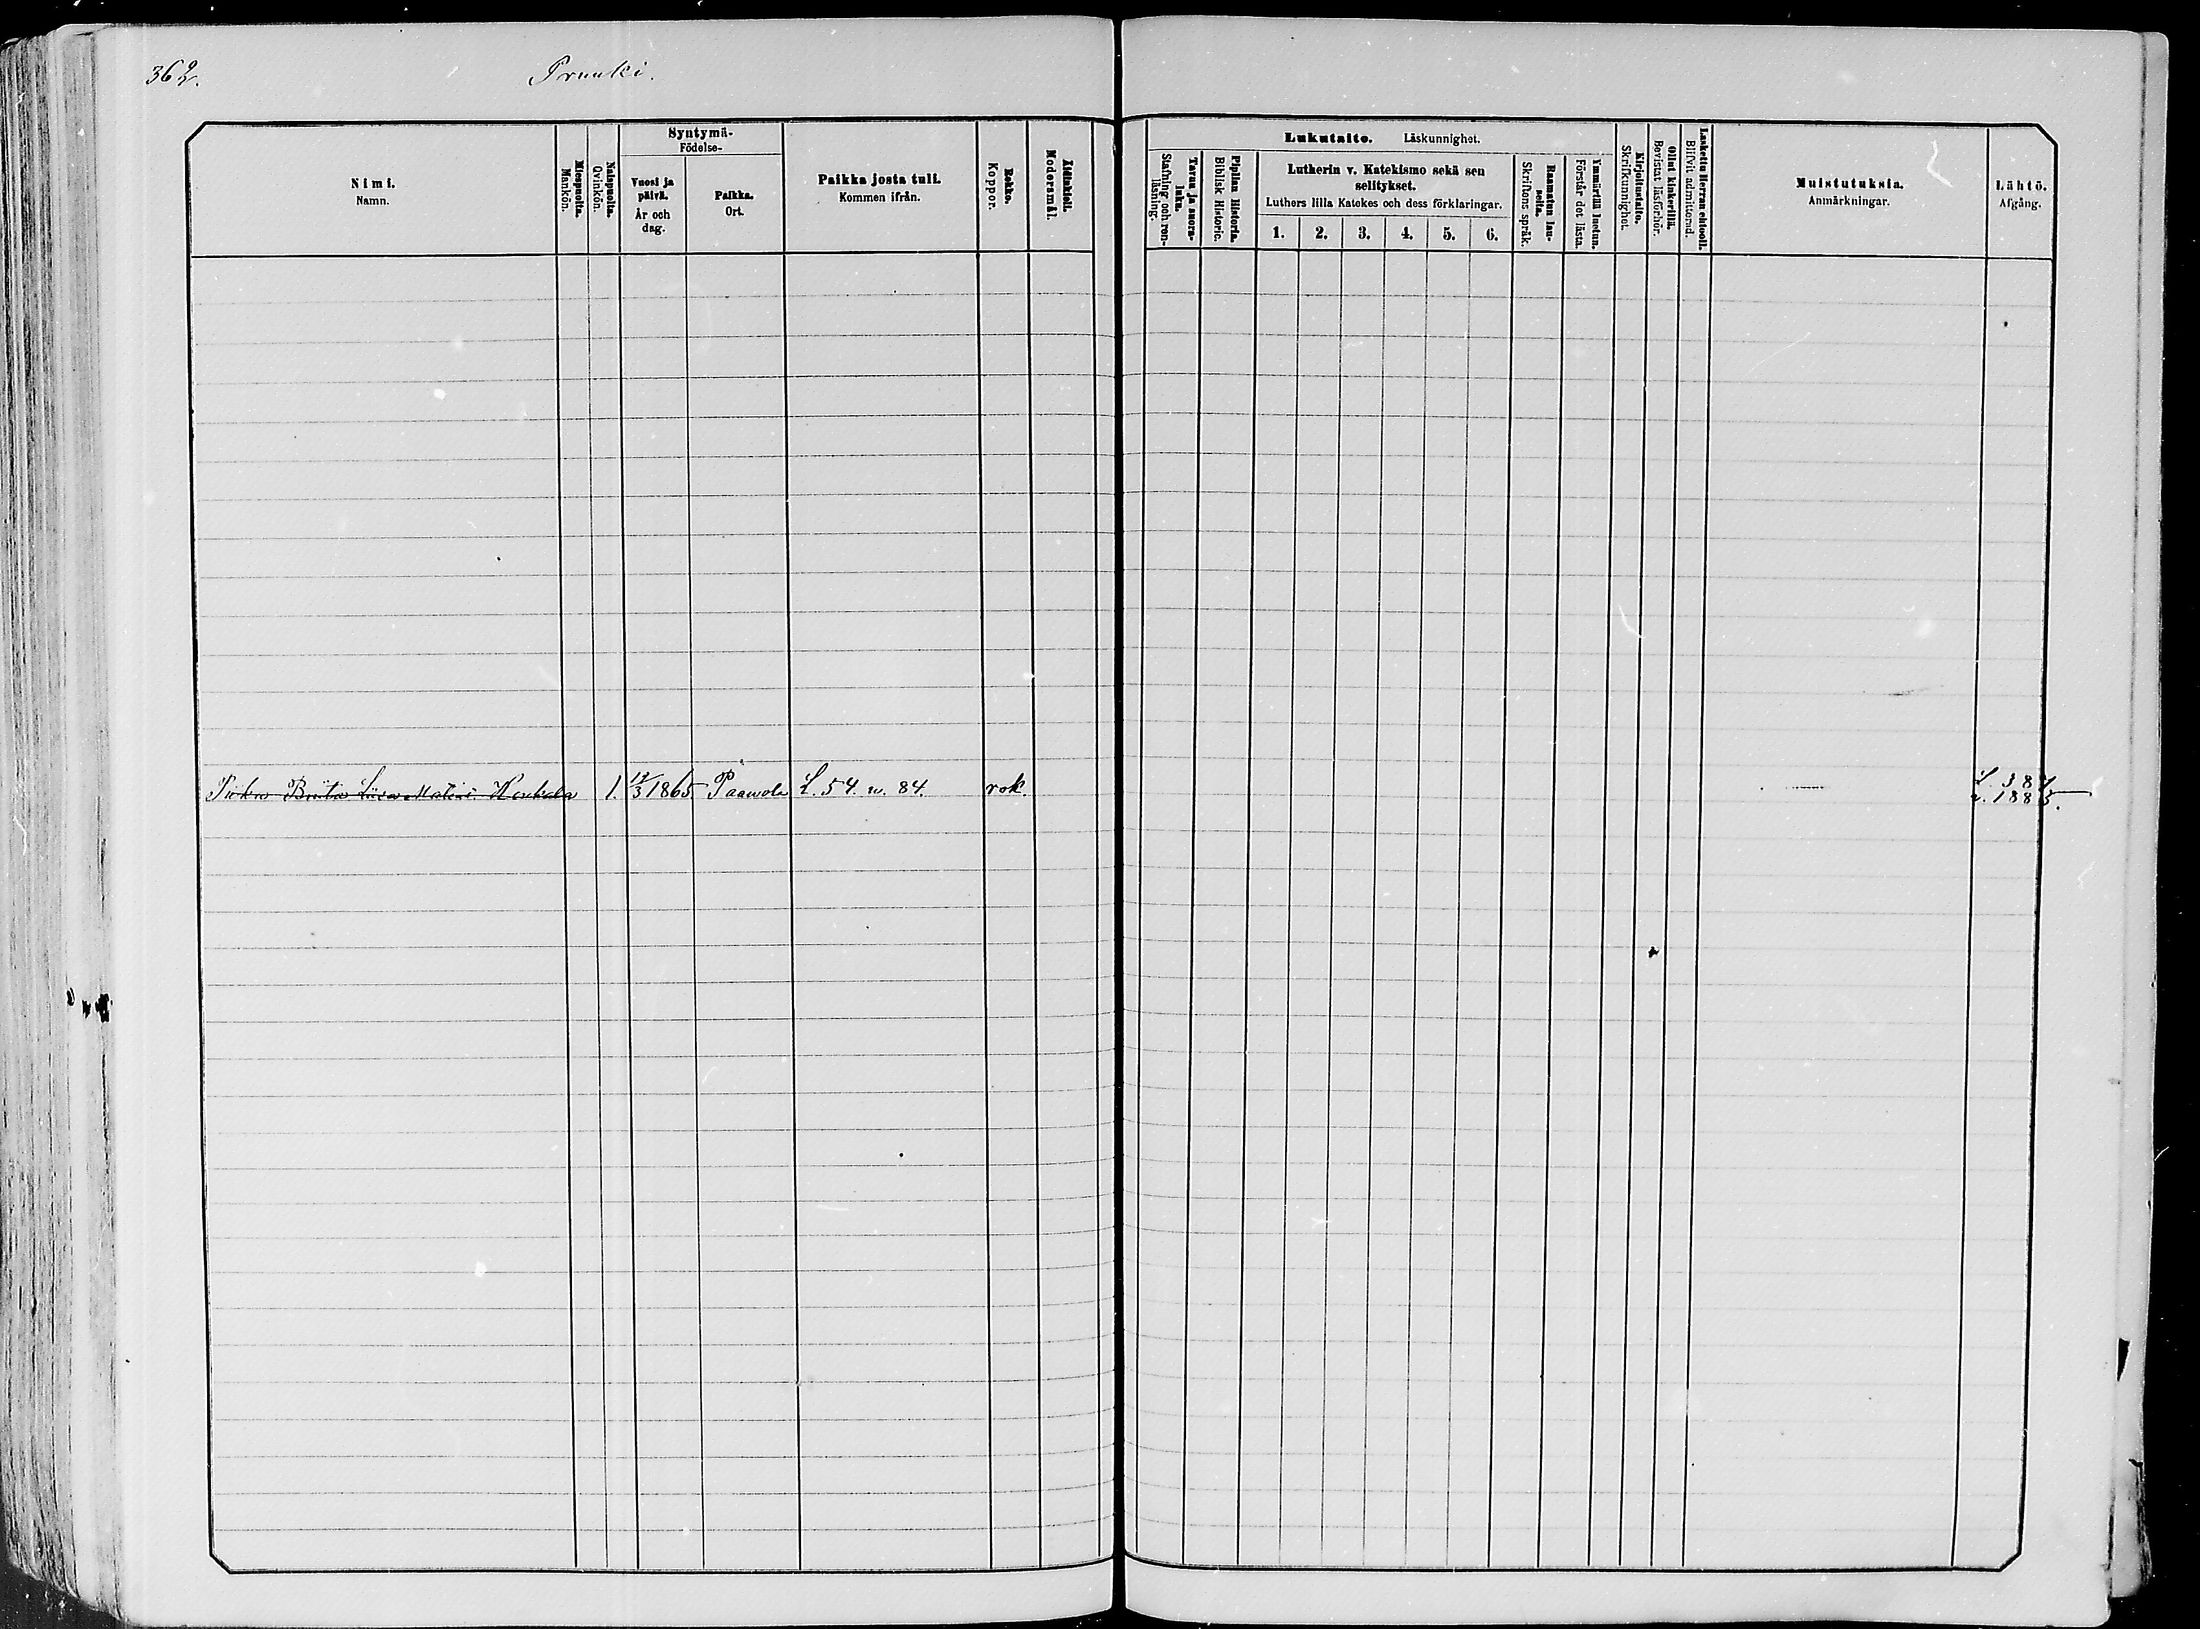 362.
Pruuki.
Nimi.
Namn.
Miespuolta.
Mankön.
Naispuolta.
Qvinkön.
Syntymä-
Födelse-
Vuosi ja
päivä.
År och
dag.
Paikka.
Ort.
Paikka josta tuli.
Kommen ifrån.
Rokko.
Koppor.
Äidinkieli.
Modersmål.
Lukutaito. Läskunnighet.
Tavaa ja suora-
luku.
Stafning och ren-
läsning.
Piplian Historia.
Biblisk Historie.
Lutherin v. Katekismo sekä sen
selitykset.
Luthers lilla Katekes och dess förklaringar.
1. 2. 3. 4. 5. 6.
Raamatun lau-
seita.
Skriftens språk.
Ymmärtää luetun.
Förstår det lästa.
Kirjoitustaito.
Skrifkunnighet.
Ollut kinkerillä.
Bevistat läsförhör.
Laskettu Herran ehtooll.
Blifvit admitterad.
Muistutuksia.
Anmärkningar.
Lähtö.
Afgång.
Piika Briita Liisa Matint. Honkala 1. 3 1865 Paawola L. 54. w. 84. rok.
1885.